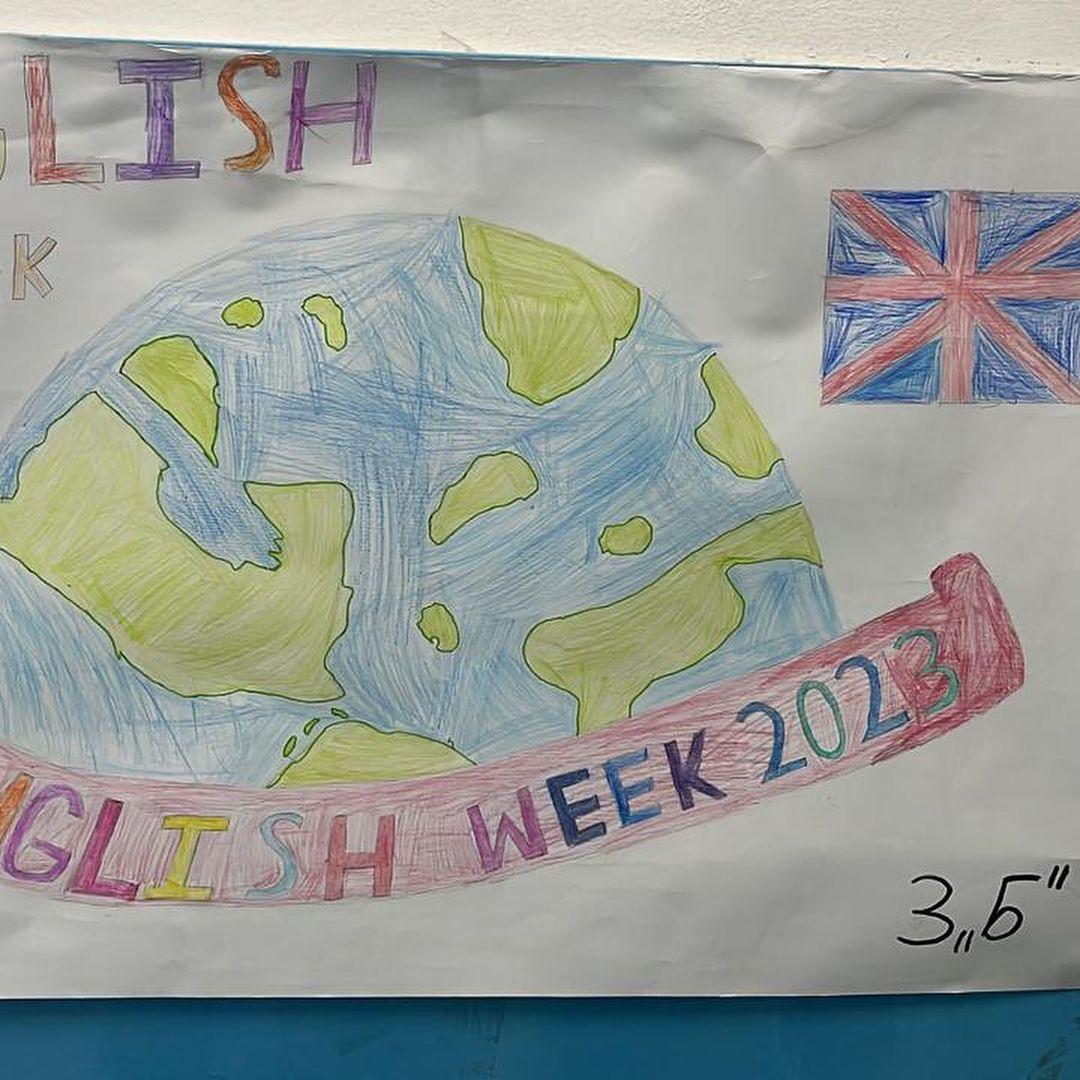 GLISH
K
NGLISH WEEK 2023
3„Б"